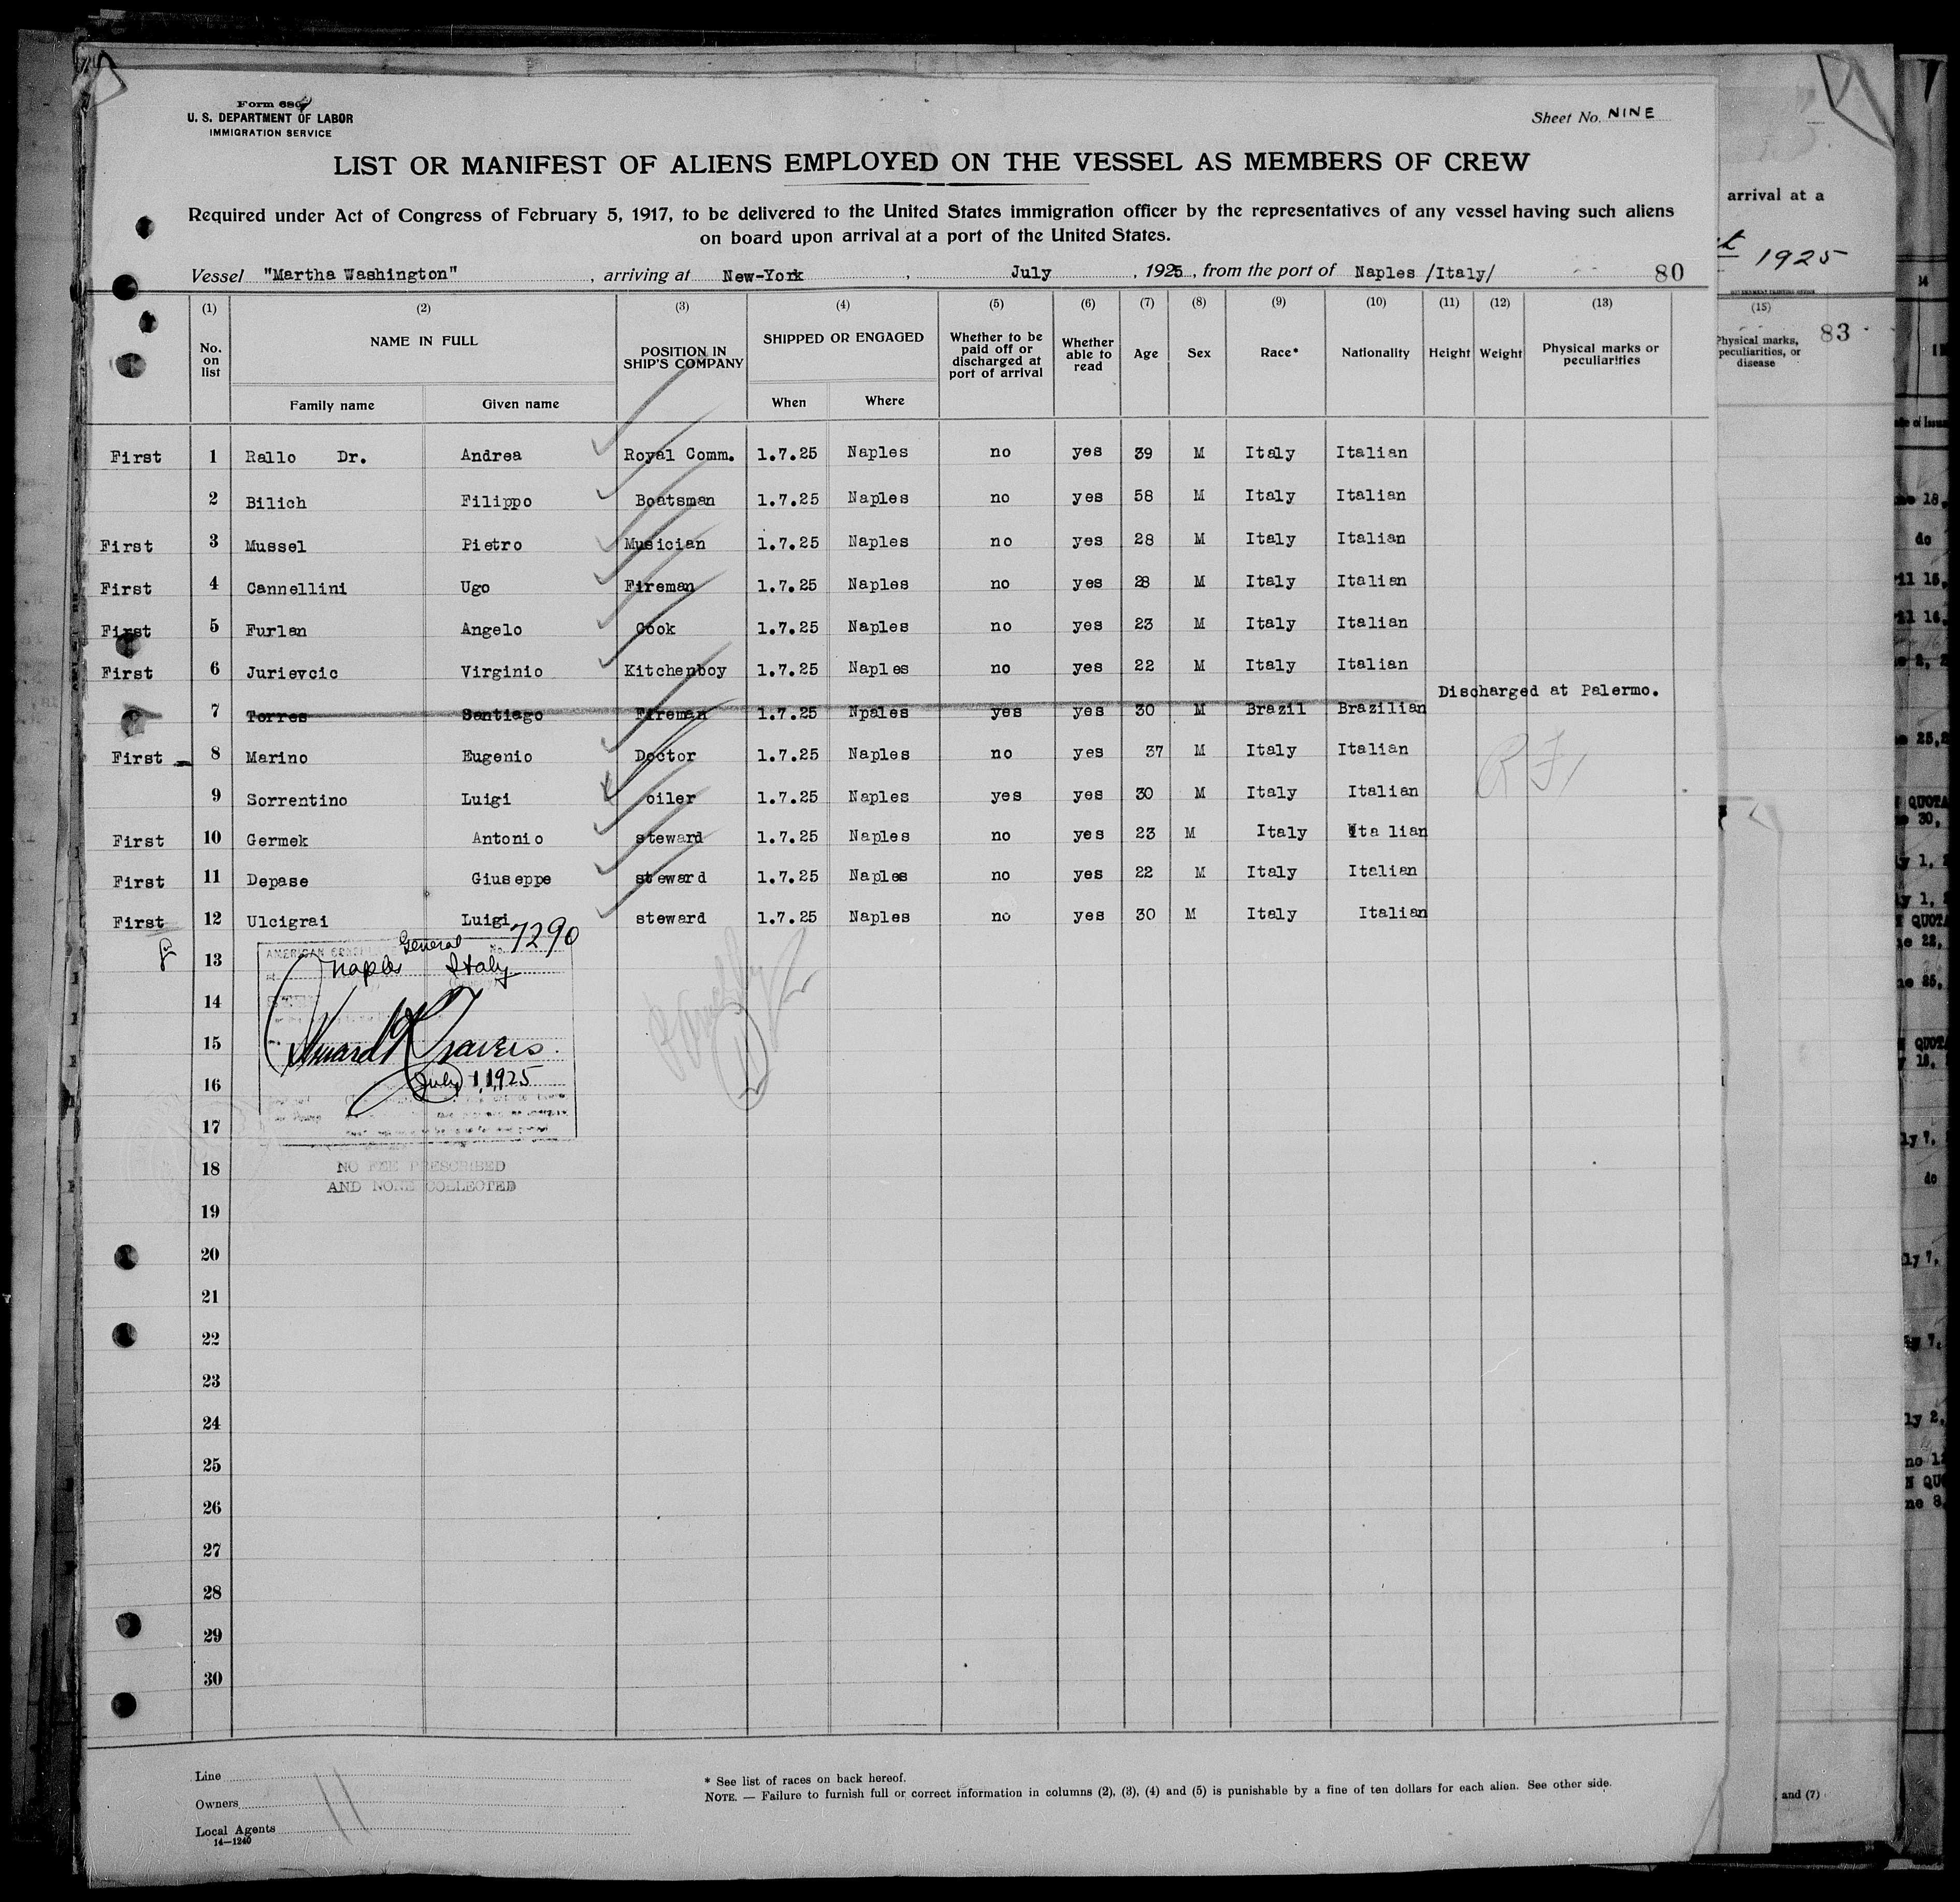 Form 680
U. S. DEPARTMENT OF LABOR
IMMIGRATION SERVICE
Sheet No. NINE
LIST OR MANIFEST OF ALIENS EMPLOYED ON THE VESSEL AS MEMBERS OF CREW
Required under Act of Congress of February 5, 1917, to be delivered to the United States immigration officer by the representatives of any vessel having such aliens
on board upon arrival at a port of the United States.
Vessel "Martha Washington" , arriving at New-York , July , 1925 , from the port of Naples /Italy/ 80
(1) (2) (3) (4) (5) (6) (7) (8) (9) (10) (11) (12) (13)
No. on list NAME IN FULL Family name Given name POSITION IN SHIP'S COMPANY SHIPPED OR ENGAGED When Where Whether to be paid off or discharged at port of arrival Whether able to read Age Sex Race* Nationality Height Weight Physical marks or peculiarities
First 1 Rallo Dr. Andrea Royal Comm. 1.7.25 Naples no yes 39 M Italy Italian
2 Bilich Filippo Boatsman 1.7.25 Naples no yes 58 M Italy Italian
First 3 Mussel Pietro Musician 1.7.25 Naples no yes 28 M Italy Italian
First 4 Cannellini Ugo Fireman 1.7.25 Naples no yes 28 M Italy Italian
First 5 Furlan Angelo Cook 1.7.25 Naples no yes 23 M Italy Italian
First 6 Jurievcic Virginio Kitchenboy 1.7.25 Naples no yes 22 M Italy Italian
Discharged at Palermo.
7 Torres Santiago Fireman 1.7.25 Npales yes yes 30 M Brazil Brazilian
First 8 Marino Eugenio Doctor 1.7.25 Naples no yes 37 M Italy Italian
9 Sorrentino Luigi oiler 1.7.25 Naples yes yes 30 M Italy Italian
First 10 Germek Antonio steward 1.7.25 Naples no yes 23 M Italy Ita lian
First 11 Depase Giuseppe steward 1.7.25 Naples no yes 22 M Italy Italian
First 12 Ulcigrai Luigi steward 1.7.25 Naples no yes 30 M Italy Italian
AMERICAN General No. 7290
13 Naples Italy
14
15
16 July 1, 1925
17
18 NO FEE PRESCRIBED
AND NONE COLLECTED
19
20
21
22
23
24
25
26
27
28
29
30
Line
Owners
Local Agents
14—1240
11
* See list of races on back hereof.
NOTE. — Failure to furnish full or correct information in columns (2), (3), (4) and (5) is punishable by a fine of ten dollars for each alien. See other side.
arrival at a
1925
(15)
Physical marks, peculiarities, or disease
83
, and (7)